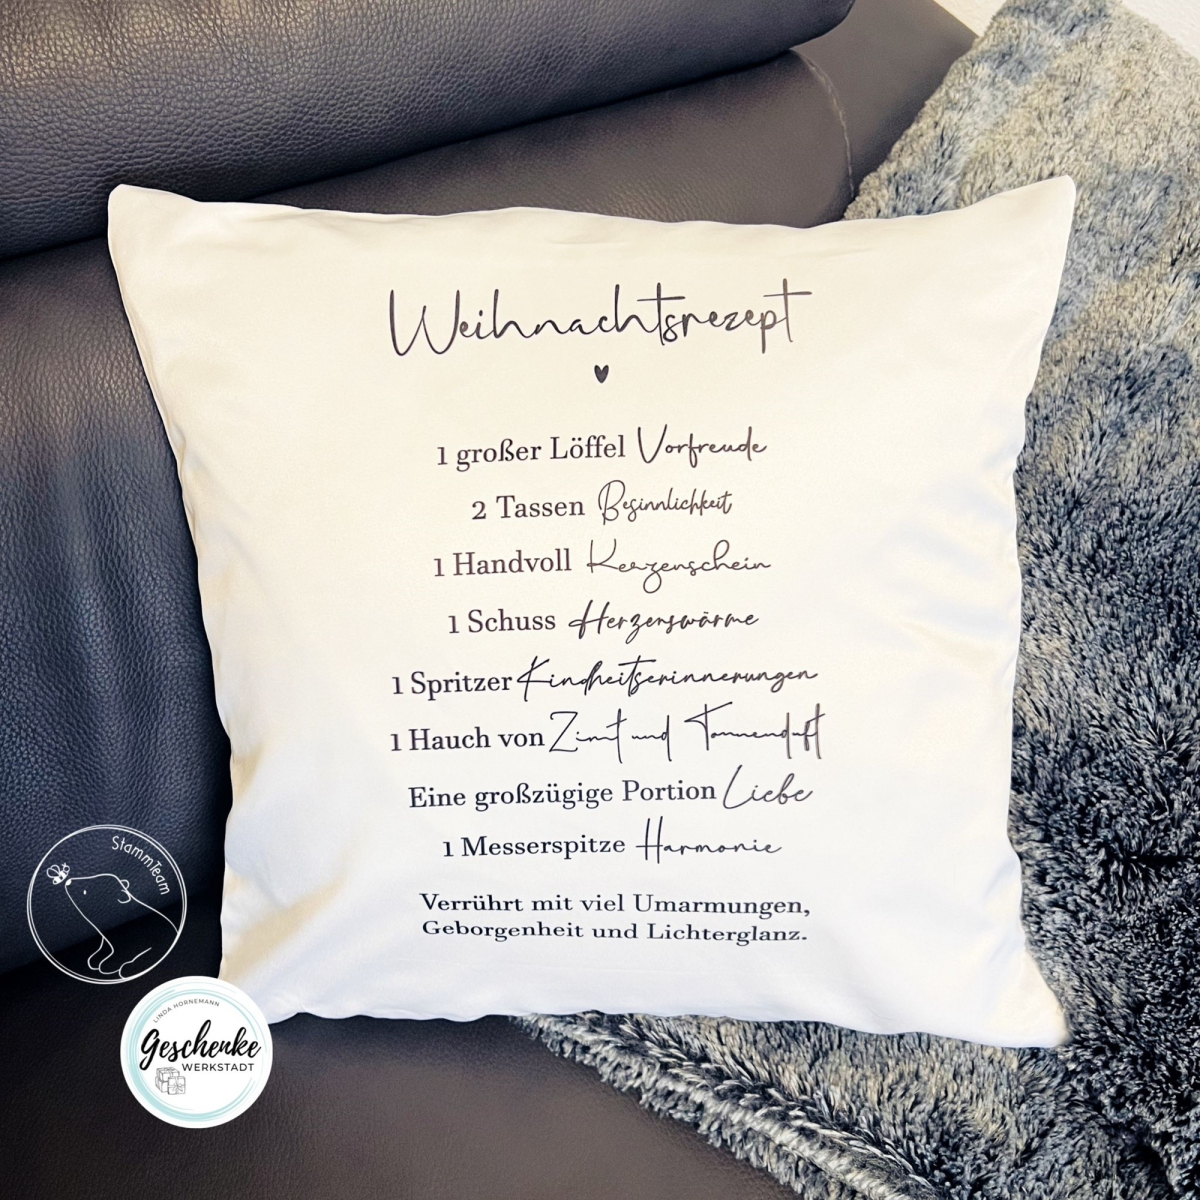 Weihnachtsrezept
1 großer Löffel Vorfreude
2 Tassen Besinnlichkeit
1 Handvoll Kerzenschein
1 Schuss Herzenswärme
1 Spritzer Kindheitserinnerungen
1 Hauch von Zimt und Tannenduft
Eine großzügige Portion Liebe
1 Messerspitze Harmonie
Verrührt mit viel Umarmungen,
Geborgenheit und Lichterglanz.
StammTeam
LINDA HORNEMANN
Geschenke
WERKSTADT